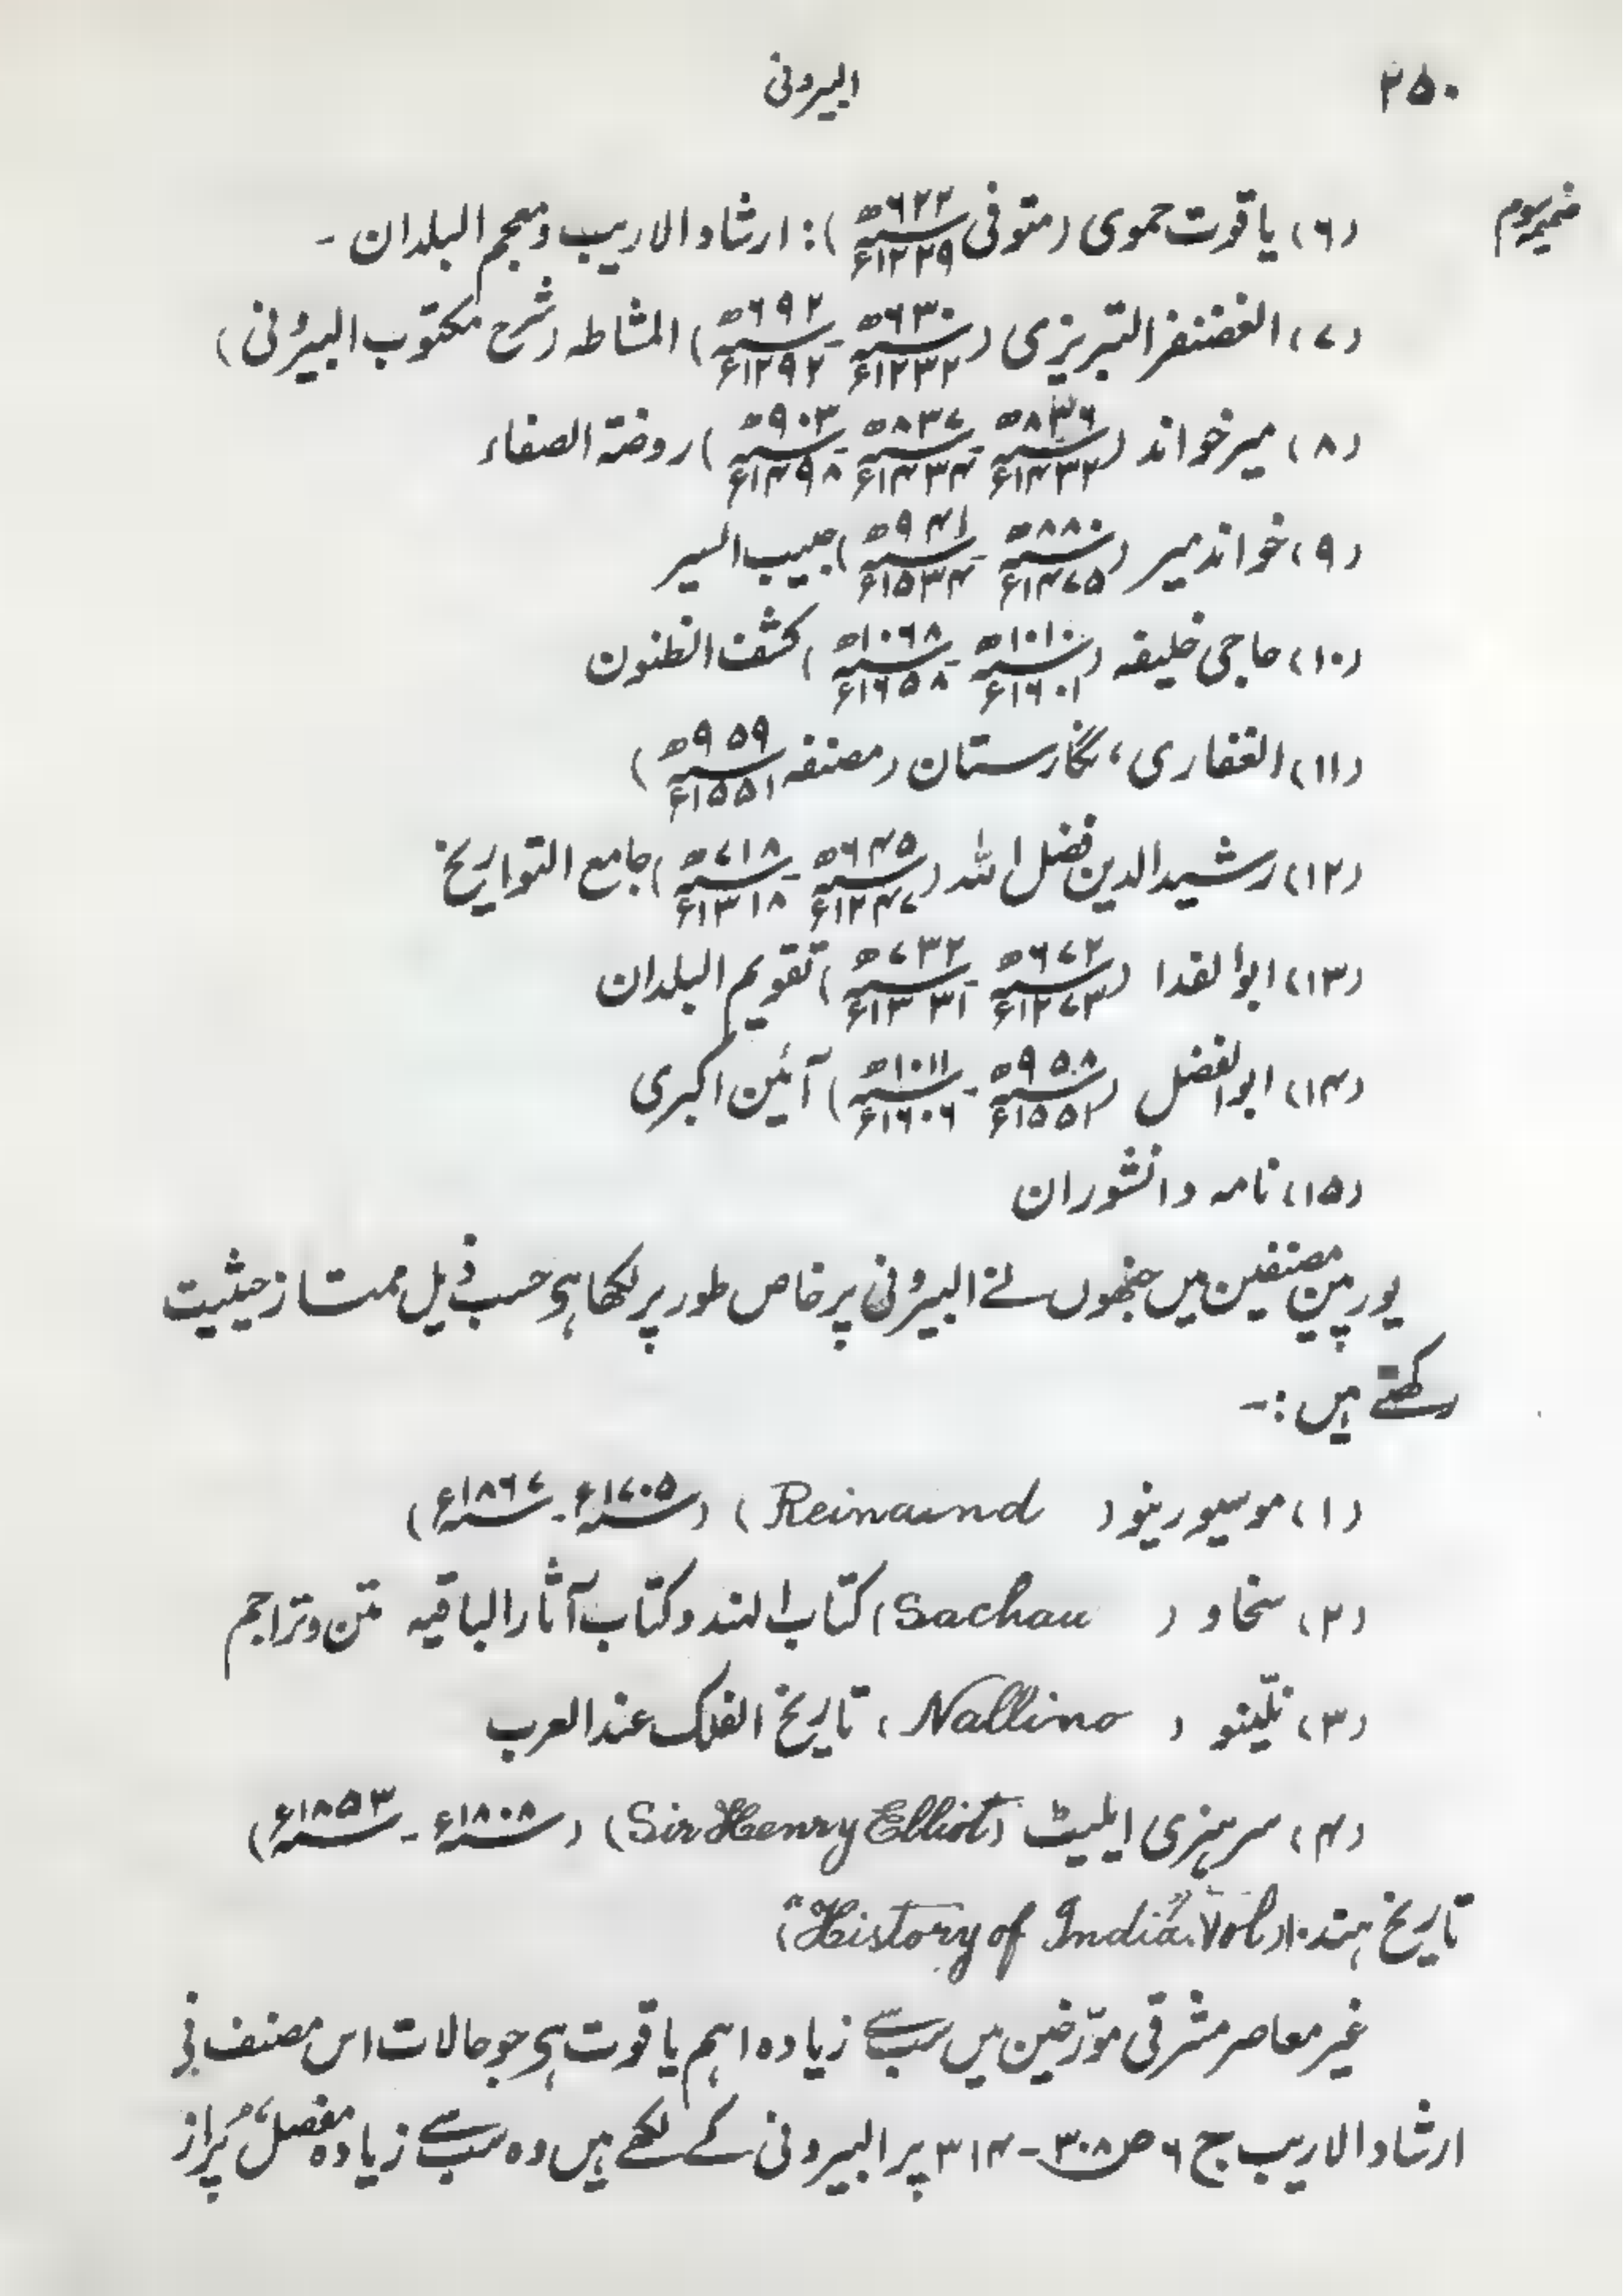 ۲۵۰
البیرونی
ضمیمہ سوم
(۶) یاقوت حموی (متوفی ۶۲۲ھ / ۱۲۲۹ء): ارشاد الاریب و معجم البلدان ۔
(۷) الغضنفر التبریزی (۶۳۰ھ / ۱۲۳۲ء - ۶۹۲ھ / ۱۲۹۲ء) المشاطہ (شرح مکتوب البیرونی)
(۸) میر خواند (۸۳۶ھ / ۱۴۳۲ء - ۸۳۷ھ / ۱۴۳۴ء - ۹۰۳ھ / ۱۴۹۸ء) روضۃ الصفاء
(۹) خواند میر (۸۸۰ھ / ۱۴۷۵ء - ۹۴۱ھ / ۱۵۳۴ء) حبیب السیر
(۱۰) حاجی خلیفہ (۱۰۱۰ھ / ۱۶۰۱ء - ۱۰۶۸ھ / ۱۶۵۸ء) کشف الظنون
(۱۱) الغفاری، نگارستان (مصنفہ ۹۵۹ھ / ۱۵۵۱ء)
(۱۲) رشید الدین فضل اللہ (۶۴۵ھ / ۱۲۴۷ء - ۷۱۸ھ / ۱۳۱۸ء) جامع التواریخ
(۱۳) ابوالفدا (۶۷۲ھ / ۱۲۷۳ء - ۷۳۲ھ / ۱۳۳۱ء) تقویم البلدان
(۱۴) ابوالفضل (۹۵۸ھ / ۱۵۵۱ء - ۱۰۱۱ھ / ۱۶۰۶ء) آئین اکبری
(۱۵) نامہ دانشوران
یورپین مصنفین میں جنھوں نے البیرونی پر خاص طور پر لکھا ہی حسب ذیل ممتاز حیثیت
رکھتے ہیں :-
(۱) موسیو رینو (Reinaund) (۱۷۰۵ء - ۱۸۶۷ء)
(۲) سخاو (Sachau) کتاب الہند و کتاب آثار الباقیہ متن و تراجم
(۳) نلّینو (Nallino) تاریخ الفلک عند العرب
(۴) سر ہنری ایلیٹ (Sir Henry Elliot) (۱۸۰۸ء - ۱۸۵۳ء)
تاریخ ہند ("History of India". Vol. I)
غیر معاصر مشرقی مؤرخین میں سب سے زیادہ اہم یاقوت ہی جو حالات اس مصنف نے
ارشاد الاریب ج ۶ ص ۳۰۸ - ۳۱۴ پر البیرونی کے لکھے ہیں وہ سب سے زیادہ مفصل، پُر از